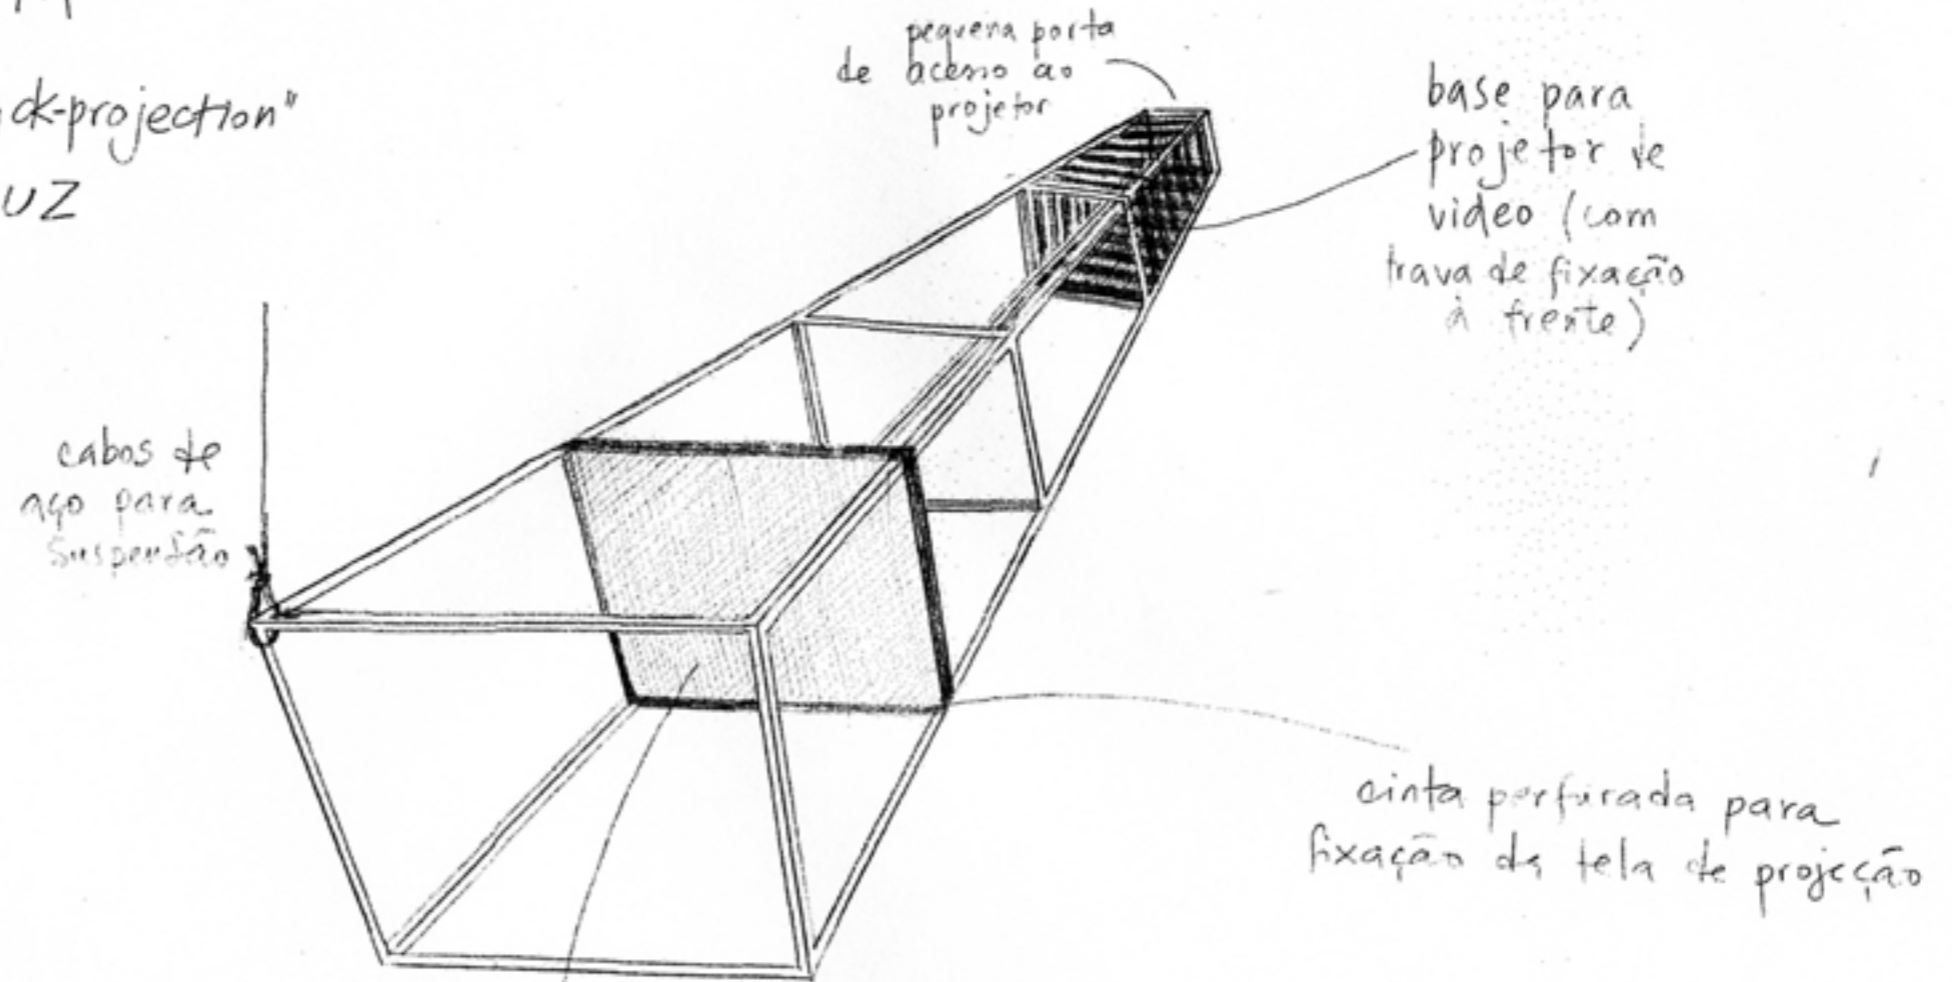 ck-projection"
UZ
pequena porta
de acesso ao
projetor
base para
projetor de
video (com
trava de fixação
à frente)
cabos de
aço para
suspensão
cinta perfurada para
fixação da tela de projecção